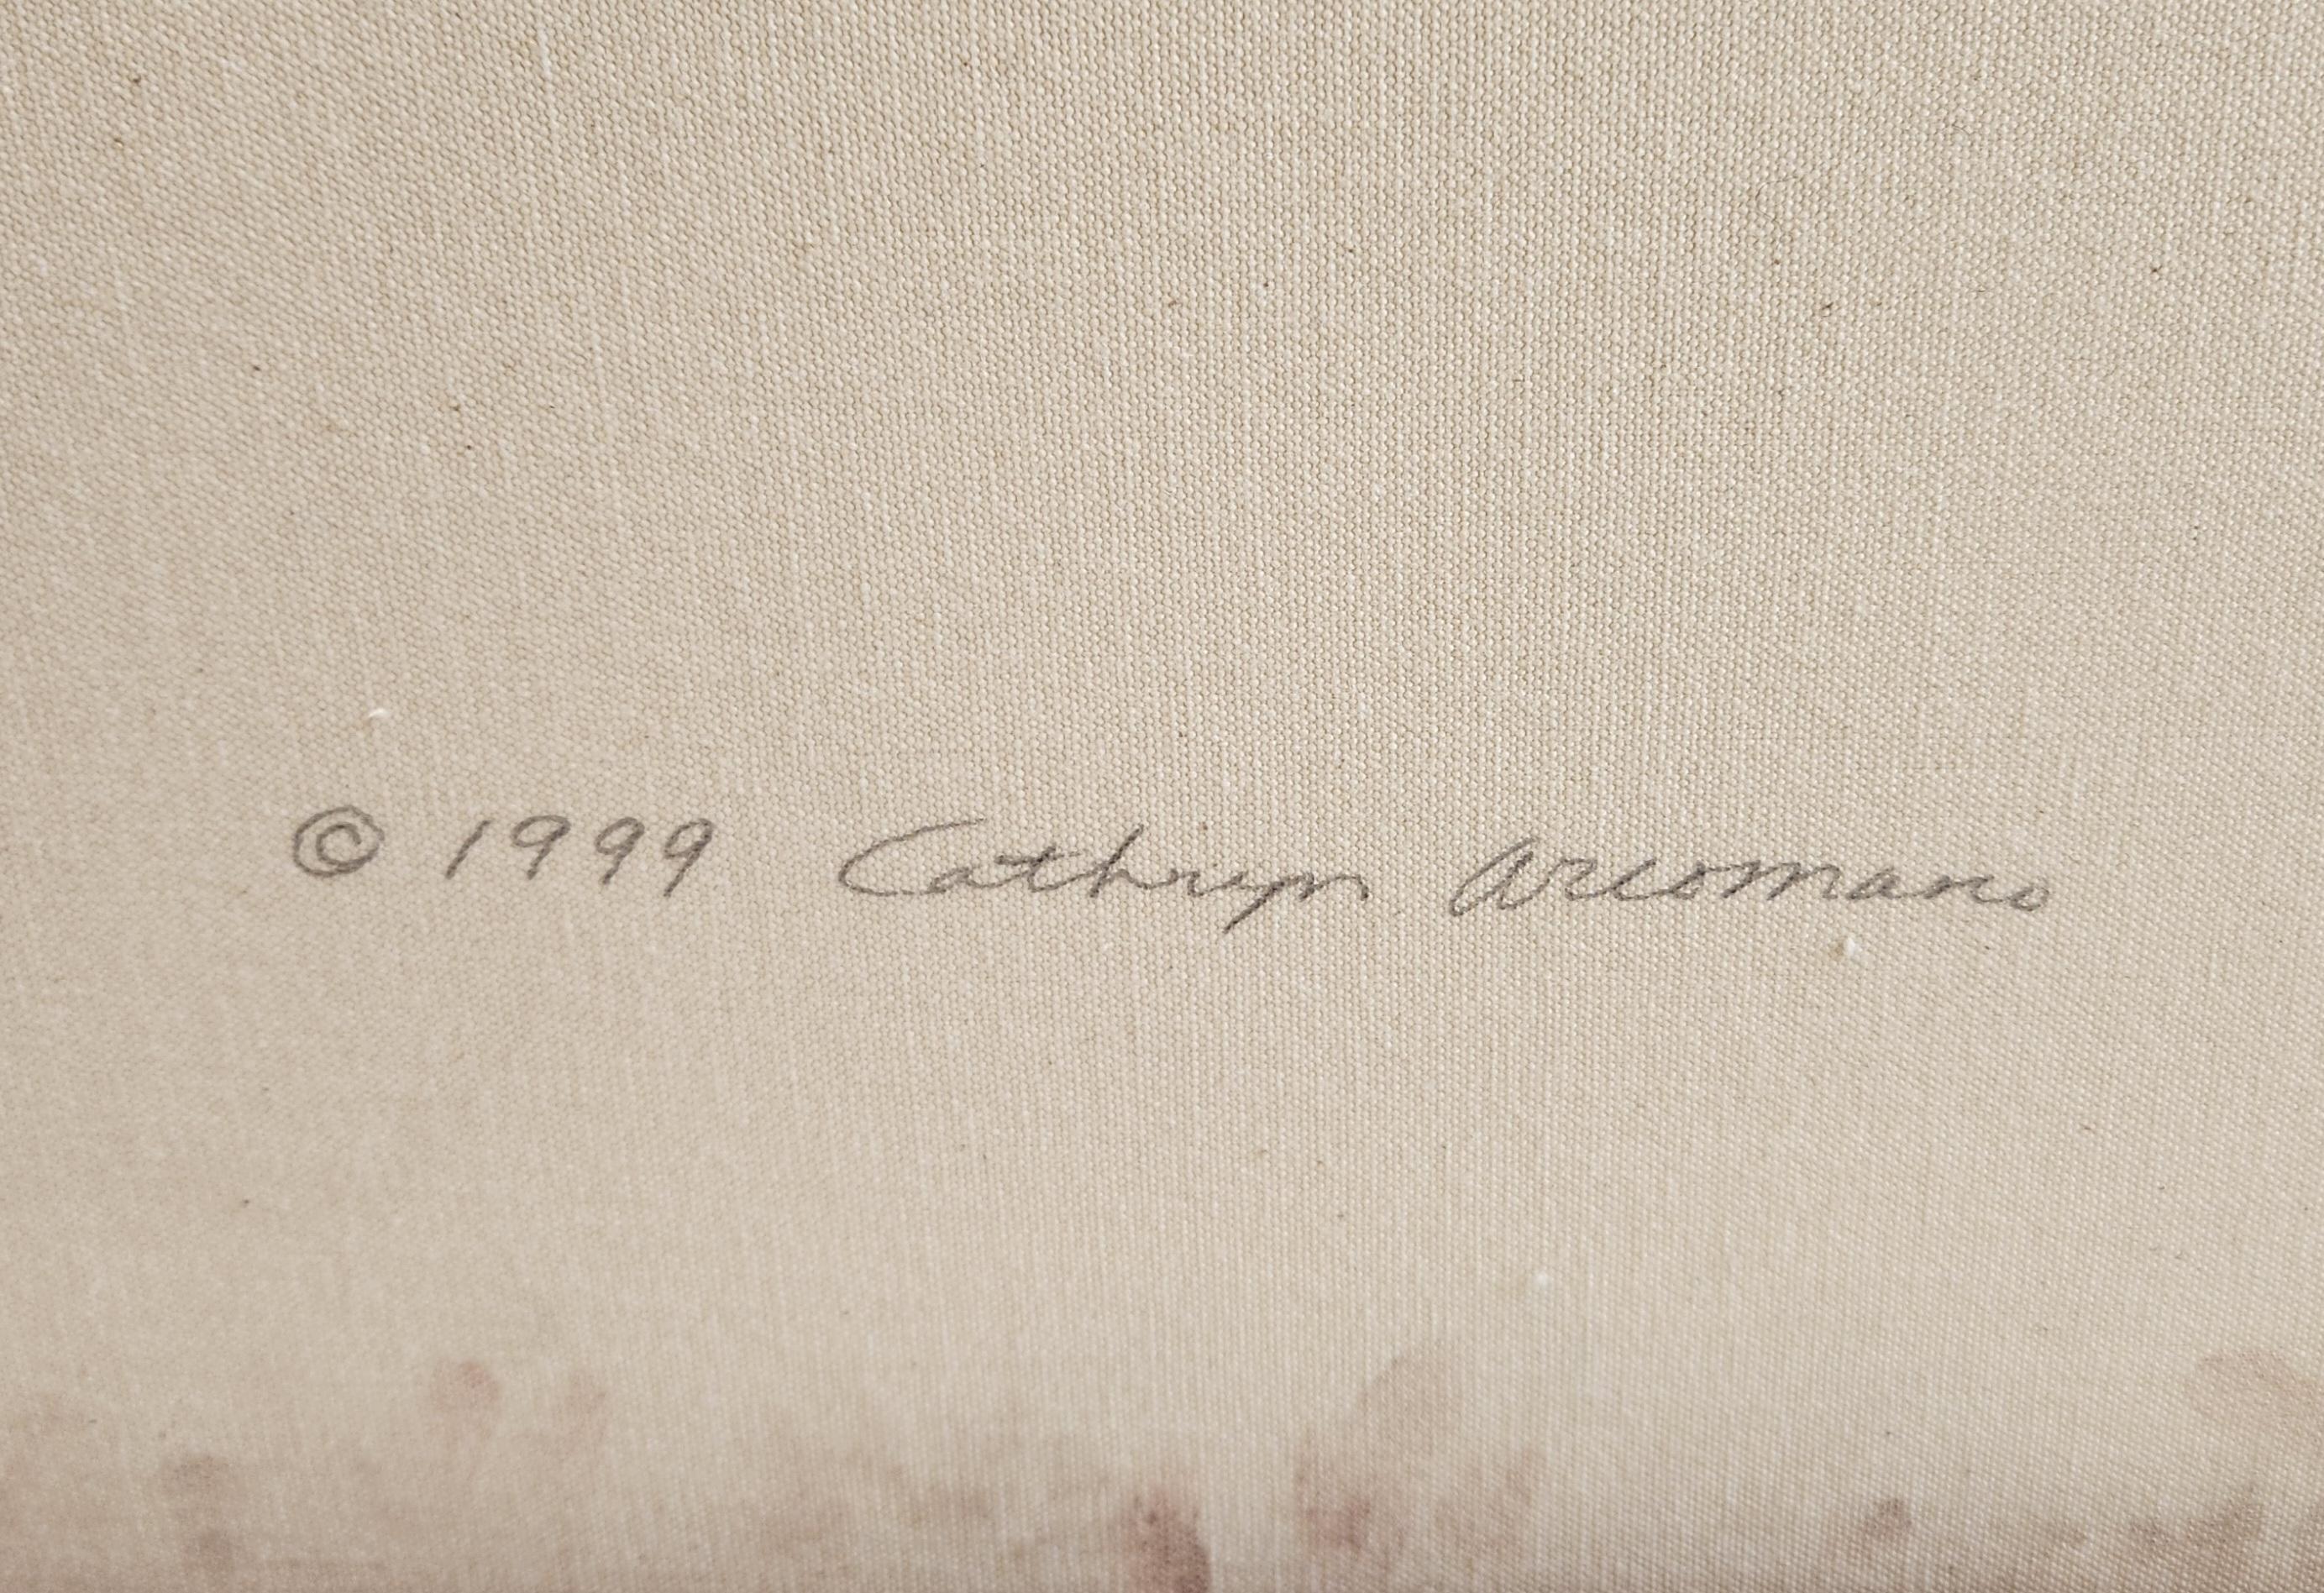 © 1999 Cathryn Arcomano